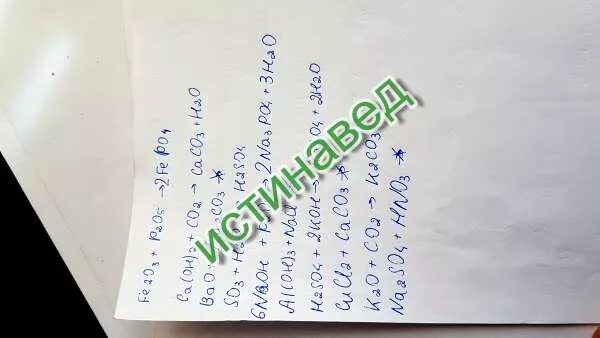 Fe2O3 + P2O5 → 2FePO4
Ca(OH)2 + CO2 → CaCO3 + H2O
BaO CO3 ↛
SO3 + H2SO4
6NaOH + → 2Na3PO4 + 3H2O
Al(OH)3 + NaCl
H2SO4 + 2KOH → + 2H2O
CuCl2 + CaCO3 ↛
K2O + CO2 → K2CO3
Na2SO4 + HNO3 ↛
истинавед